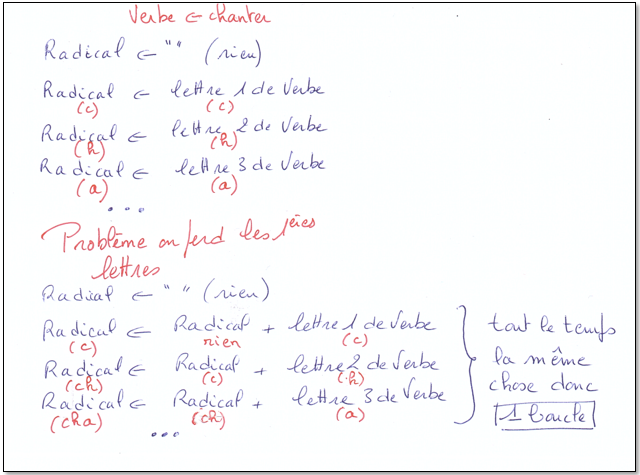 Verbe ← chanter
Radical ← " " (rien)
Radical ← lettre 1 de Verbe
(c) (c)
Radical ← lettre 2 de Verbe
(h) (h)
Radical ← lettre 3 de Verbe
(a) (a)
...
Problème on perd les 1ères
lettres
Radical ← " " (rien)
Radical ← Radical + lettre 1 de Verbe
(c) rien (c)
Radical ← Radical + lettre 2 de Verbe
(ch) (c) (h)
Radical ← Radical + lettre 3 de Verbe
(cha) (ch) (a)
...
tout le temps
la même
chose donc
1 boucle